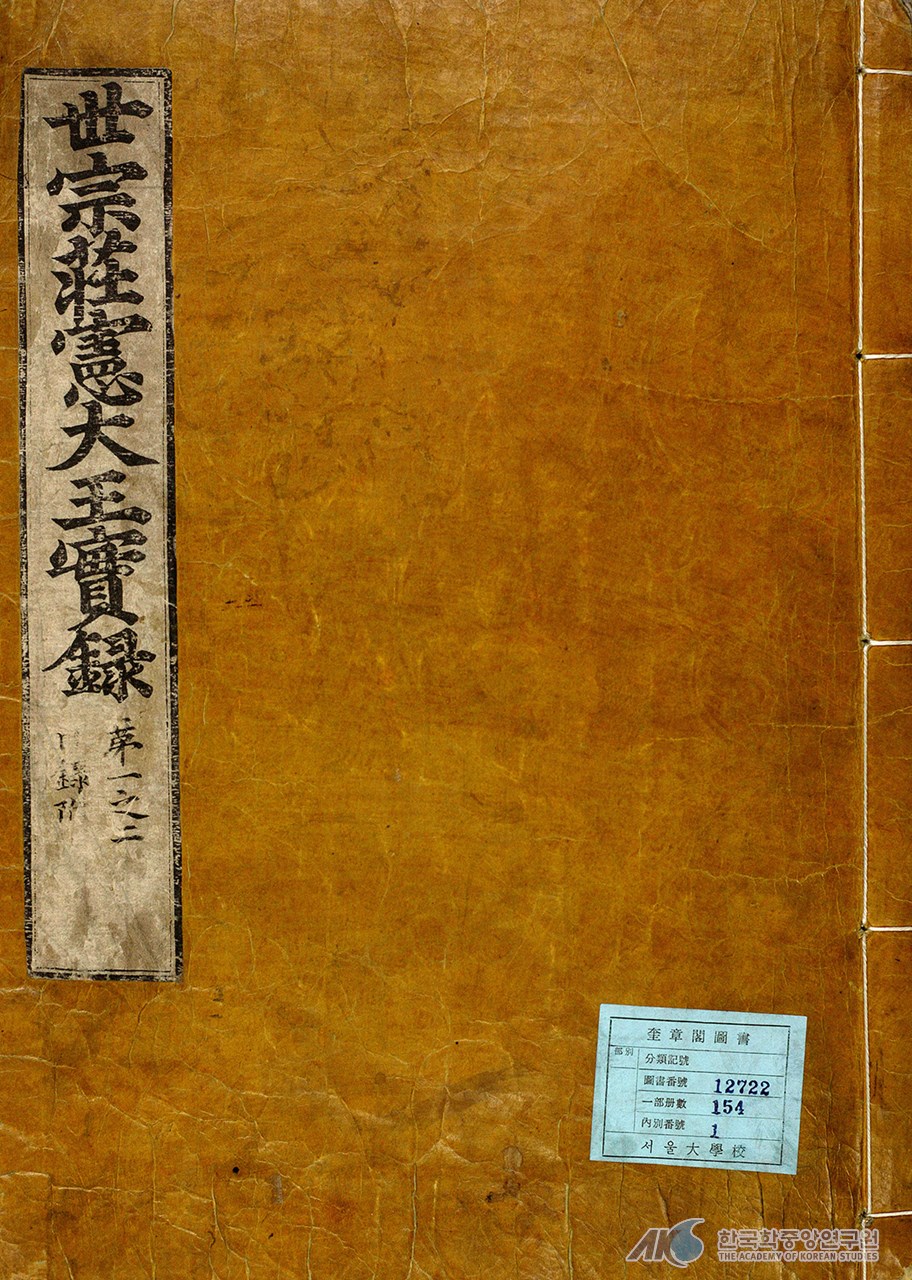 世宗莊憲大王實録
第一之二
録
奎章閣圖書
部別
分類記號
圖書番號 12722
一部册數 154
內別番號 1
서울大學校
AKS 한국학중앙연구원
THE ACADEMY OF KOREAN STUDIES